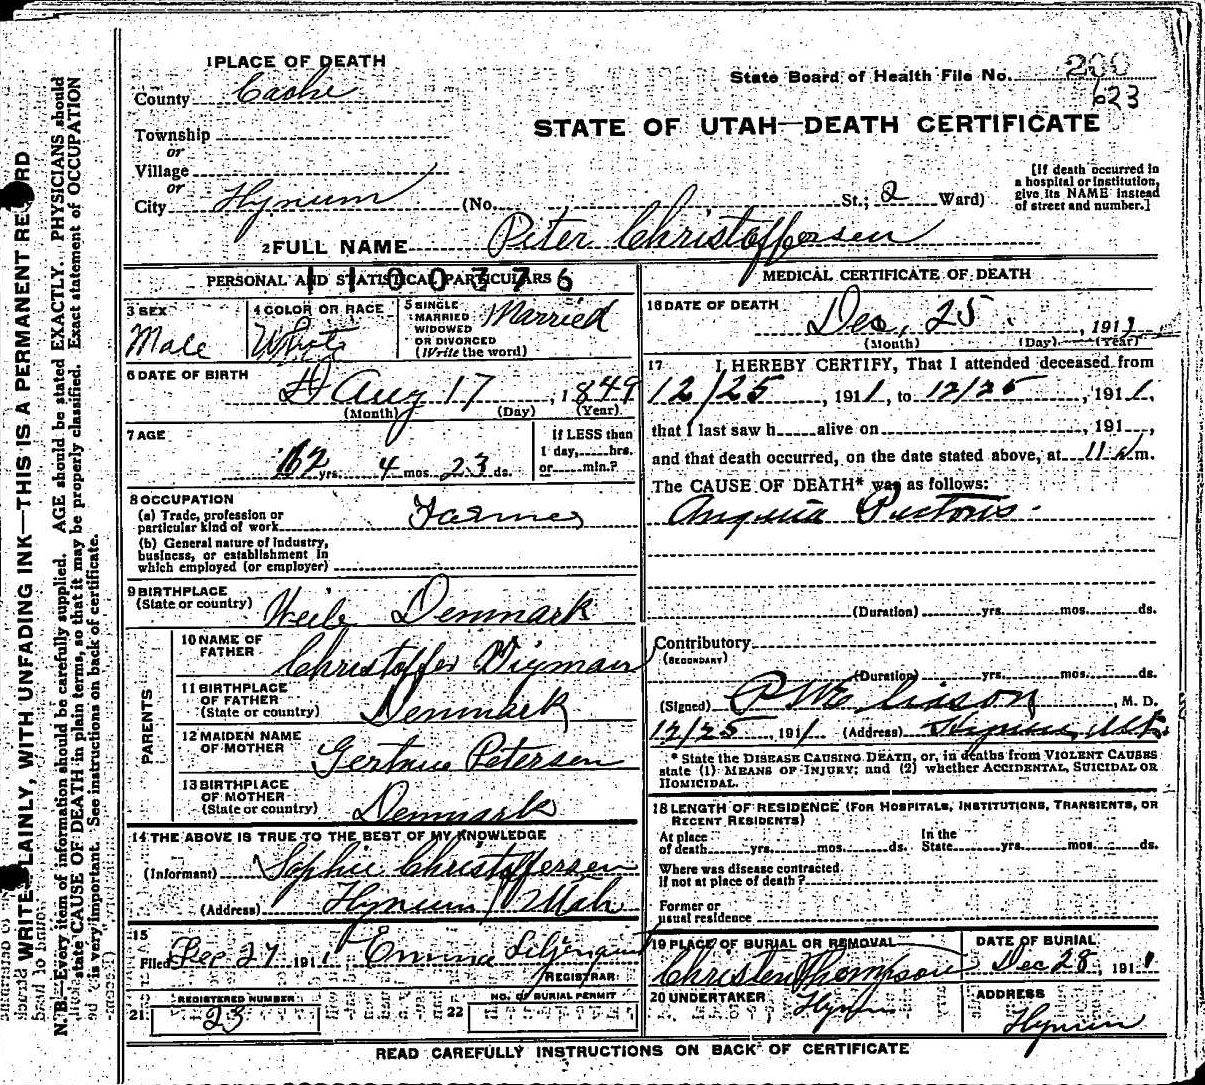 1 PLACE OF DEATH
County Cache
State Board of Health File No. 200
623
Township
or
Village
or
City Hyrum (No. St.; 2 Ward)
STATE OF UTAH—DEATH CERTIFICATE
[If death occurred in
a hospital or institution,
give its NAME instead
of street and number.]
2 FULL NAME Peter Christoffersen
PERSONAL AND STATISTICAL PARTICULARS
1100376
3 SEX
Male
4 COLOR OR RACE
White
5 SINGLE
MARRIED
WIDOWED
OR DIVORCED
(Write the word)
Married
6 DATE OF BIRTH
Aug 17, 1849
(Month) (Day) (Year)
7 AGE
62 yrs. 4 mos. 23 ds.
If LESS than
1 day, hrs.
or min.?
8 OCCUPATION
(a) Trade, profession or
particular kind of work Farmer
(b) General nature of industry,
business, or establishment in
which employed (or employer)
9 BIRTHPLACE
(State or country) Weile Denmark
PARENTS
10 NAME OF
FATHER Christoffer
11 BIRTHPLACE
OF FATHER
(State or country) Denmark
12 MAIDEN NAME
OF MOTHER Gertrue Petersen
13 BIRTHPLACE
OF MOTHER
(State or country) Denmark
14 THE ABOVE IS TRUE TO THE BEST OF MY KNOWLEDGE
(Informant) Sophie Christoffersen
(Address) Hyrum Utah
15
Filed Dec 27 1911 Emma Liljenquist
REGISTRAR.
21 REGISTERED NUMBER
23
22 NO. OF BURIAL PERMIT
MEDICAL CERTIFICATE OF DEATH
16 DATE OF DEATH
Dec, 25, 1911
(Month) (Day) (Year)
17 I HEREBY CERTIFY, That I attended deceased from
12/25, 1911, to 12/25, 1911,
that I last saw h alive on , 191 ,
and that death occurred, on the date stated above, at 11 m.
The CAUSE OF DEATH* was as follows:
Angina Pectoris.
(Duration) yrs. mos. ds.
Contributory
(SECONDARY)
(Duration) yrs. mos. ds.
(Signed) , M. D.
12/25, 1911 (Address) Hyrum, Utah
* State the DISEASE CAUSING DEATH, or, in deaths from VIOLENT CAUSES
state (1) MEANS OF INJURY; and (2) whether ACCIDENTAL, SUICIDAL OR
HOMICIDAL.
18 LENGTH OF RESIDENCE (FOR HOSPITALS, INSTITUTIONS, TRANSIENTS, OR
RECENT RESIDENTS)
At place
of death yrs. mos. ds.
In the
State yrs. mos. ds.
Where was disease contracted,
if not at place of death?
Former or
usual residence
19 PLACE OF BURIAL OR REMOVAL
DATE OF BURIAL
Christen Thompson
Dec 28, 1911
20 UNDERTAKER
Hyrum
ADDRESS
Hyrum
READ CAREFULLY INSTRUCTIONS ON BACK OF CERTIFICATE
WRITE PLAINLY, WITH UNFADING INK—THIS IS A PERMANENT RECORD
N. B.—Every item of information should be carefully supplied. AGE should be stated EXACTLY. PHYSICIANS should
state CAUSE OF DEATH in plain terms, so that it may be properly classified. Exact statement of OCCUPATION
is very important. See instructions on back of certificate.